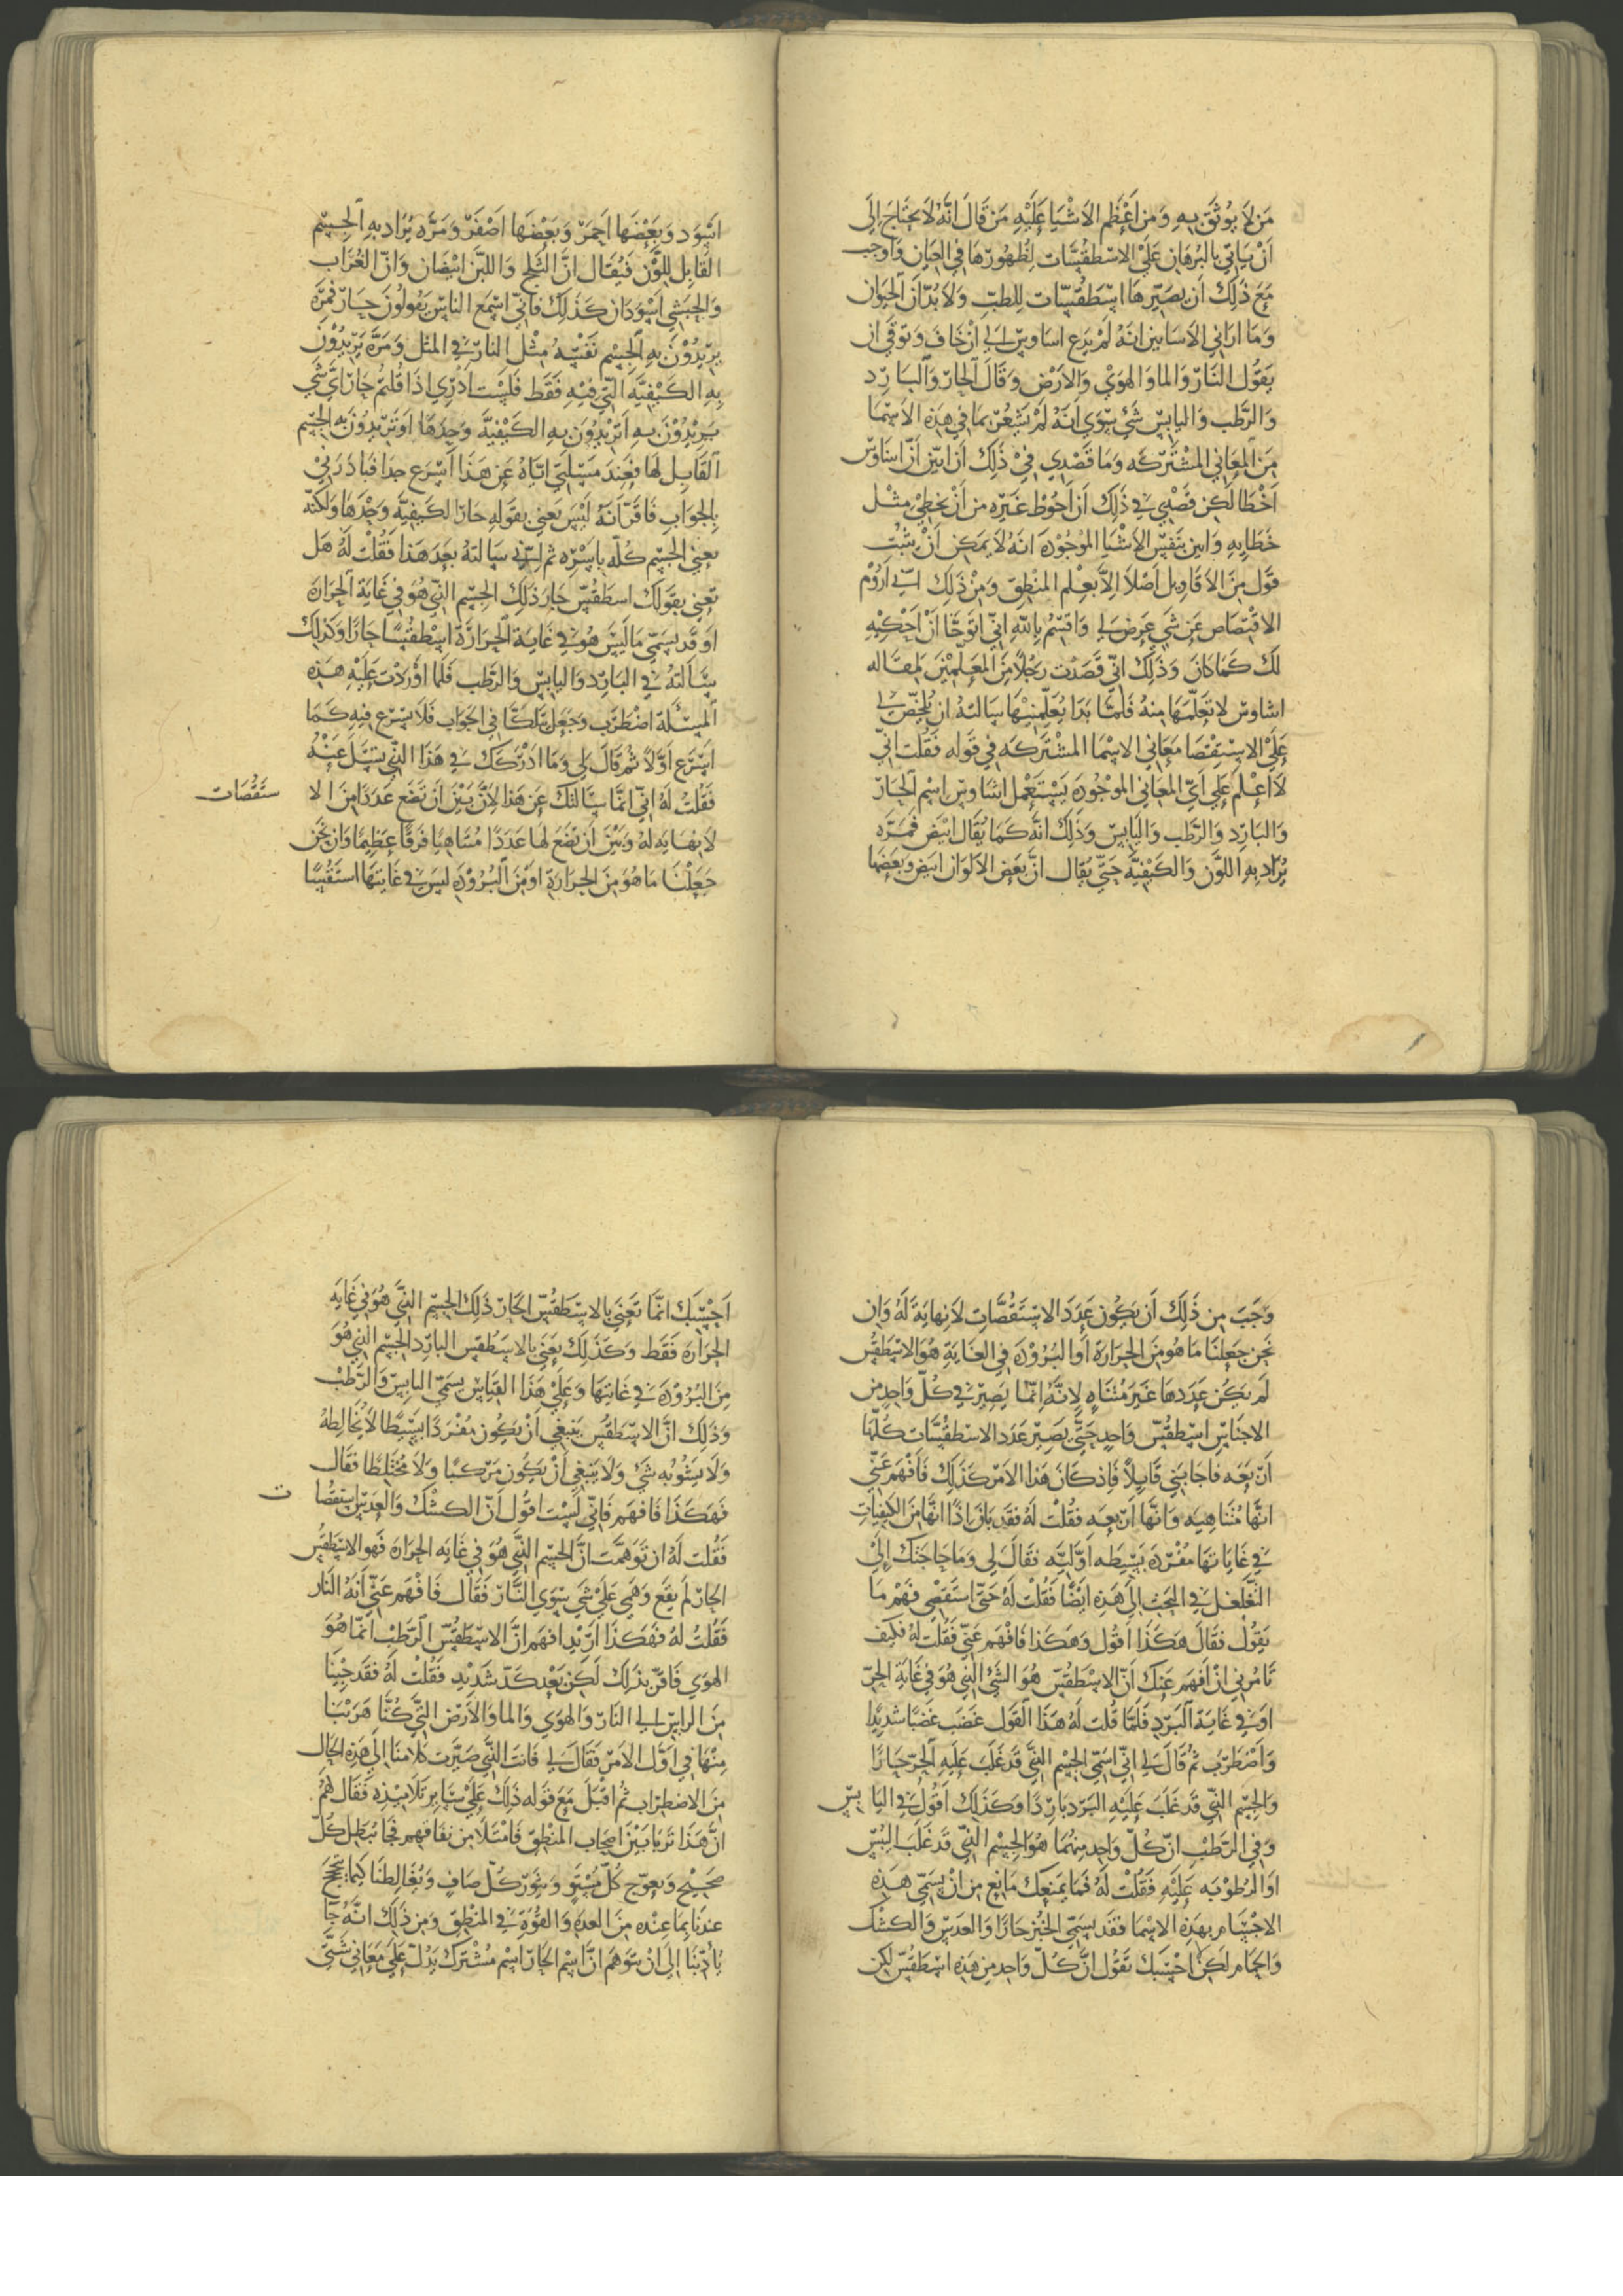 من لا يوثق به ومن اعظم الاشيا عليه من قال انه لا يحتاج الى
ان ياتي بالبرهان على الاسطقسات لظهورها في العيان واوجب
مع ذلك ان يصيرها اسطقسات للطب ولا بد ان الجواز
وما اراني الا سابين انه لم يدع اساوس الى ان خاف وتوقى ان
يقول النار والما والهوى والارض وقال الحار والبارد
والرطب واليابس شي سوى انه لم يشعر بما في هذه الاسما
من المعاني المشتركه وما قصدي في ذلك ان ابين ان اساوس
اخطا لكن قصدي في ذلك ان احوط غيره من ان يخطي مثل
خطايه وابين بنفس الاشيا الموجوده انه لا يمكن ان يثبت
قول من الاقاويل اصلا الا بعلم المنطق ومن ذلك اني اروم
الاقتصاص عن شي عرض لي واقسم بالله اني اتوخا ان احكيه
لك كما كان وذلك اني قصدت رجلا من المعلمين لمقاله
اثاوس لاتعلمها منه فلما بدا يعلمنيها سالته ان يلخص لي
على الاستقصا معاني الاسما المشتركه في قوله فقلت اني
لا اعلم على اي المعاني الموجوده يستعمل اثاوس اسم الحار
والبارد والرطب واليابس وذلك انه كما يقال ابيض فمره
يراد به اللون والكيفيه حتى يقال ان بعض الالوان ابيض وبعضها
اسود وبعضها احمر وبعضها اصفر ومره يراد به الجسم
القابل للون فيقال ان الثلج واللبن ابيضان وان الغراب
والحبشي اسودان كذلك فاني اسمع الناس يقولون حار فمره
يريدون به الجسم نفسه مثل النار في المثل ومره يريدون
به الكيفيه التي فيه فقط فلست ادري اذا قلتم حار اي شي
يريدون به اتريدون به الكيفيه وحدها او تريدون به الجسم
القابل لها فعند مسلتي اياه عن هذا اسرع جدا فبادرني
بالجواب فاقر انه ليس يعني بقوله حار الكيفيه وحدها ولكنه
يعني الجسم كله باسره ثم اني سالته بعد هذا فقلت له هل
تعني بقولك اسطقس حار ذلك الجسم الذي هو في غاية الحراره
او قد يسمى ما ليس هو في غاية الحرارة اسطقسا حارا وكذلك
سالته في البارد واليابس والرطب فلما اوردت عليه هذه
المسئله اضطرب وجعل يتلكا في الجواب فلا يسرع فيه كما
اسرع اولا ثم قال لي وما ادركك في هذا الذي تسل عنه
فقلت له اني انما سالتك عن هذا لان بين ان تضع عددا من الا
ستقصات
لا نهايه له وبين ان تضع لها عددا متناهيا فرقا عظيما وان نحن
جعلنا ما هو من الحرارة او من البروده ليس في غايتها استقسا
وجب من ذلك ان يكون عدد الاستقصات لا نهاية له وان
نحن جعلنا ما هو من الحرارة او البروده في الغاية هو الاسطقس
لم يكن عددها غير متناه لانه انما يصير في كل واحد من
الاجناس اسطقس واحد حتى يصير عدد الاسطقسات كلها
اربعه فاجابني قايلا فاذ كان هذا الامر كذلك فافهم عني
انها متناهيه وانها اربعه فقلت له فقد بان اذا انها من الكيفيات
في غاياتها مفرده بسيطه اوليه فقال لي وما حاجتك الى
التغلغل في البحث الى هذه ايضا فقلت له حتى استقصى فهم ما
يقول فقال هكذا اقول وهكذا فافهم عني فقلت له فكيف
تامرني ان افهم عنك ان الاسطقس هو الشي الذي هو في غاية الحر
او في غاية البرد فلما قلت له هذا القول غضب غضبا شديدا
واضطرب ثم قال لي اني اسمي الجسم الذي قد غلب عليه الحر حارا
والجسم الذي قد غلب عليه البرد باردا وكذلك اقول في اليابس
وفي الرطب ان كل واحد منهما هو الجسم الذي قد غلب اليبس
او الرطوبه عليه فقلت له فما يمنعك مانع من ان يسمى هذه
الاجسام بهذه الاسما فقد يسمى الخبز حارا والعدس والكشك
والحمام لكن احسبك تقول ان كل واحد من هذه اسطقس لكن
احسبك انما تعني بالاسطقس الحار ذلك الجسم الذي هو في غايه
الحراره فقط وكذلك يعني بالاسطقس البارد الجسم الذي هو
من البروده في غايتها وعلى هذا القياس يسمى اليابس والرطب
وذلك ان الاسطقس ينبغي ان يكون مفردا بسيطا لا يخالطه
ولا يشوبه شي ولا ينبغي ان يكون مركبا ولا مختلطا فقال
فهكذا فافهم فاني لست اقول ان الكشك والعدس استقصا
ت
فقلت له ان توهمت ان الجسم الذي هو في غايه الحراره فهو الاسطقس
الحار لم يقع وهمي على شي سوى النار فقال فافهم عني انه النار
فقلت له فهكذا اريد افهم ان الاسطقس الرطب انما هو
الهوى فاقر بذلك لكن بعد كد شديد فقلت له فقد جينا
من الراس الى النار والهوى والما والارض التي كنا هربنا
منها في اول الامر فقال لي فانت الذي صيرت كلامنا الى هذه الحال
من الاضطراب ثم اقبل مع قوله ذلك على ساير تلاميذه فقال لهم
ان هذا تربا بين اصحاب المنطق فامتلا من نفاقهم فجا يبطل كل
صحيح ويعوج كل مستو ويثور كل صاف ويغالطنا كيما يتبجح
عندنا بما عنده من العده والقوه في المنطق ومن ذلك انه جا
يادبنا الى ان نتوهم ان اسم الحار اسم مشترك يدل على معاني شتى